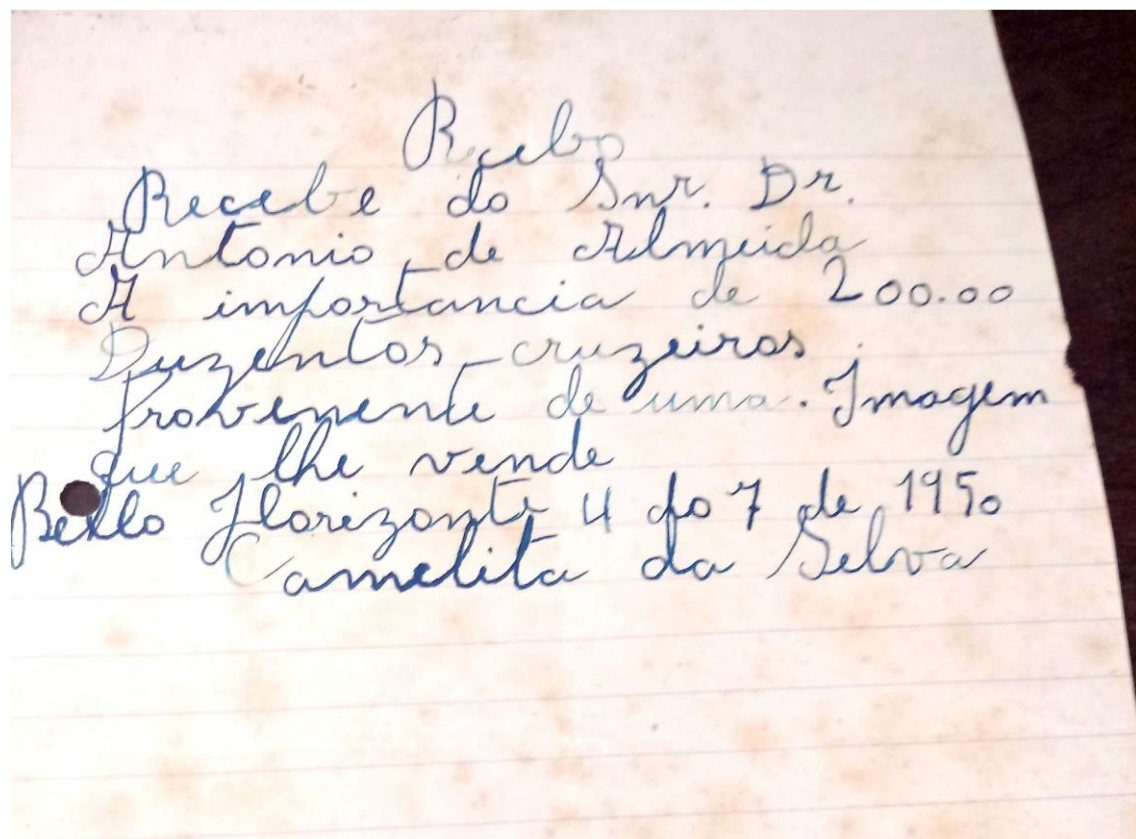 Recebo
Recebe do Snr. Dr.
Antonio de Almeida
A importancia de 200.00
Duzentos cruzeiros.
Provenente de uma. Imagem
que lhe vende
Bello Horizonte 4 do 7 de 1950
Camelita da Selva